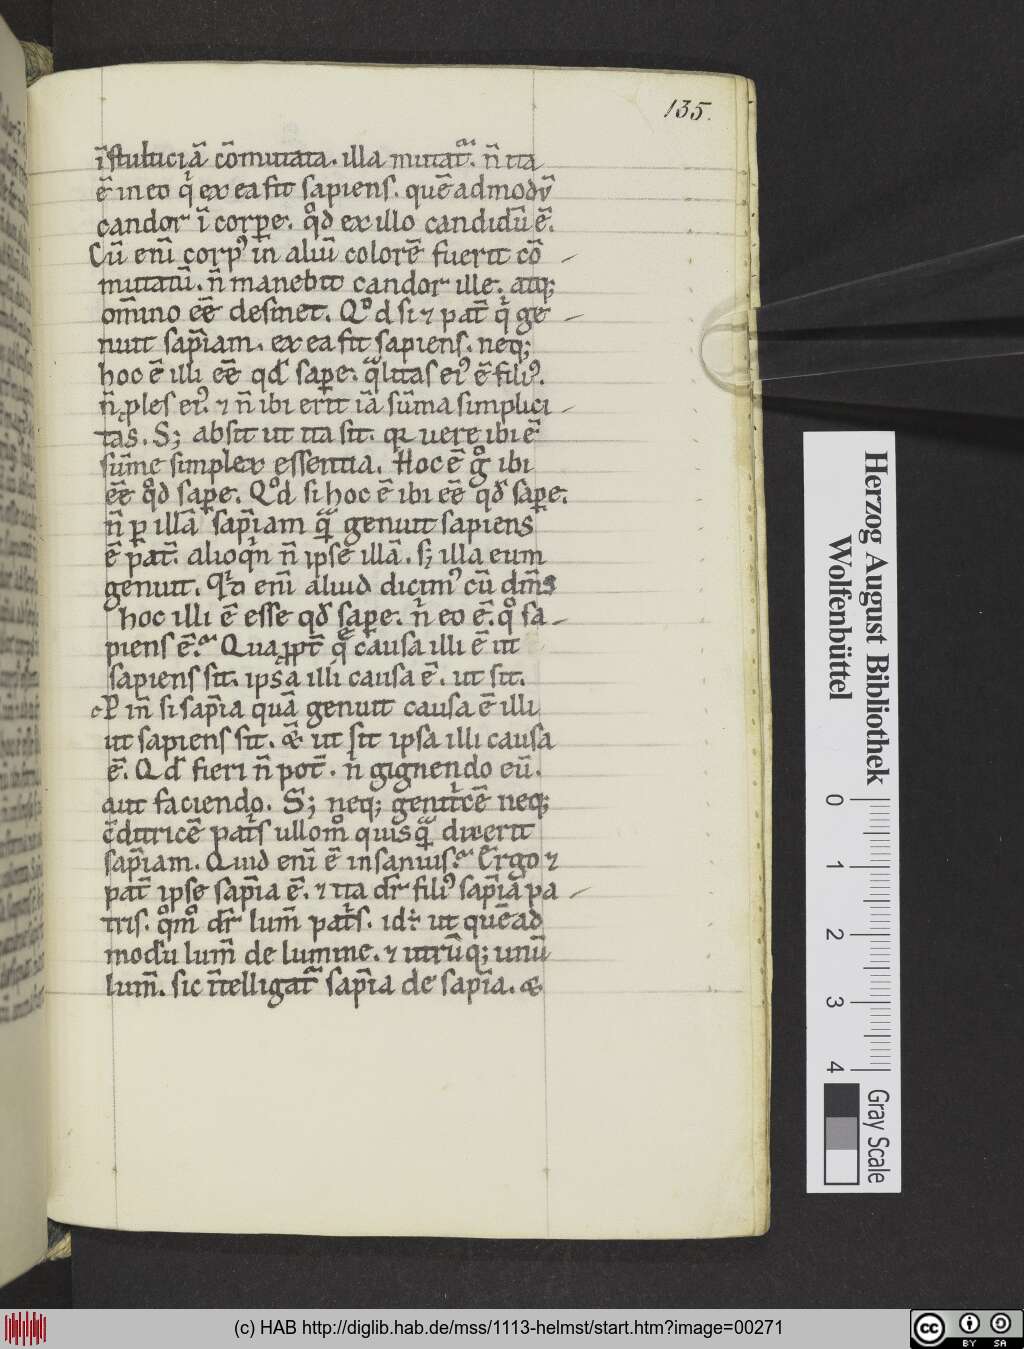 135.
ī stulticiā cōmutata. illa mutat̃. n̄ ita
ē in eo q̇ ex ea fit sapiens. quēadmodū
candor ī corꝑe. qͦd ex illo candidū ē.
Cū eni̅ corpꝰ in̄ aliū colorē fuerit cō-
mutatū. n̄ manebit candor ille. atq;
om̄ino eē desinet. Qͦd si ⁊ pat̄ q̇ ge-
nuit sap̄iam. ex ea fit sapiens. neq;
hoc ē illi eē qd̄ saꝑe. qͣlitas eiꝰ ē filiꝰ.
n̄ ꝓles eiꝰ. ⁊ n̄ ibi erit iā sūma simplici-
tas. S; absit ut ita sit. qꝛ uere ibi ē
sūme simplex essentia. Hoc ē gͦ ibi
eē qͦd saꝑe. Qͦd si hoc ē ibi eē qd̄ saꝑe.
n̄ ꝑ illā sap̄iam qͣ̄ genuit sapiens
ē pat̄. alioqͥn n̄ ipse illā. s; illa eum
genuit. Qͥd eni̅ aliud dicimꝰ cū dicim̄s
hoc illi ē esse qd̄ saꝑe. nͥ eo ē. qͦ sa-
piens ē. Quaꝓpt̄ q̄ causa illi ē ut
sapiens sit. ipsa illi causa ē. ut sit.
P in̄ si sap̄ia quā genuit causa ē illi
ut sapiens sit. & ut sit ipsa illi causa
ē. Qd̄ fieri n̄ pot̄. n̄ gignendo eū.
aut faciendo. S; neq; genitͥcē neq;
c̄dituricē patͥs ullomͦ quisqͣ̄ dixerit
sap̄iam. Quid eni̅ ē insanius. Ergo ⁊
pat̄ ipse sap̄ia ē. ⁊ ita dr̄ filiꝰ sap̄ia pa-
tris. qͦmͦ dr̄ lum̄ patͥs. id. ut quēad
modū lum̄ de lumine. ⁊ utrūq; unū
lum̄. sic ītelligat̄ sap̄ia de sap̄ia. &
Herzog August Bibliothek
Wolfenbüttel
0 1 2 3 4
Gray Scale
(c) HAB http://diglib.hab.de/mss/1113-helmst/start.htm?image=00271
cc BY SA